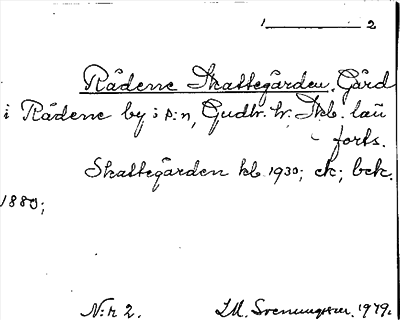 1 2
Rådene Skattegården. Gård
i Rådene by i s:n, Gudh. hr. Skb. län
forts.
Skattegården kb 1930; ek; bek.
1880;
N:r 2. I.M. Svenungsson, 1979.